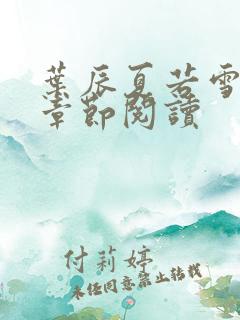 葉辰夏若雪
章節閱讀
付莉婷
未经同意禁止转载